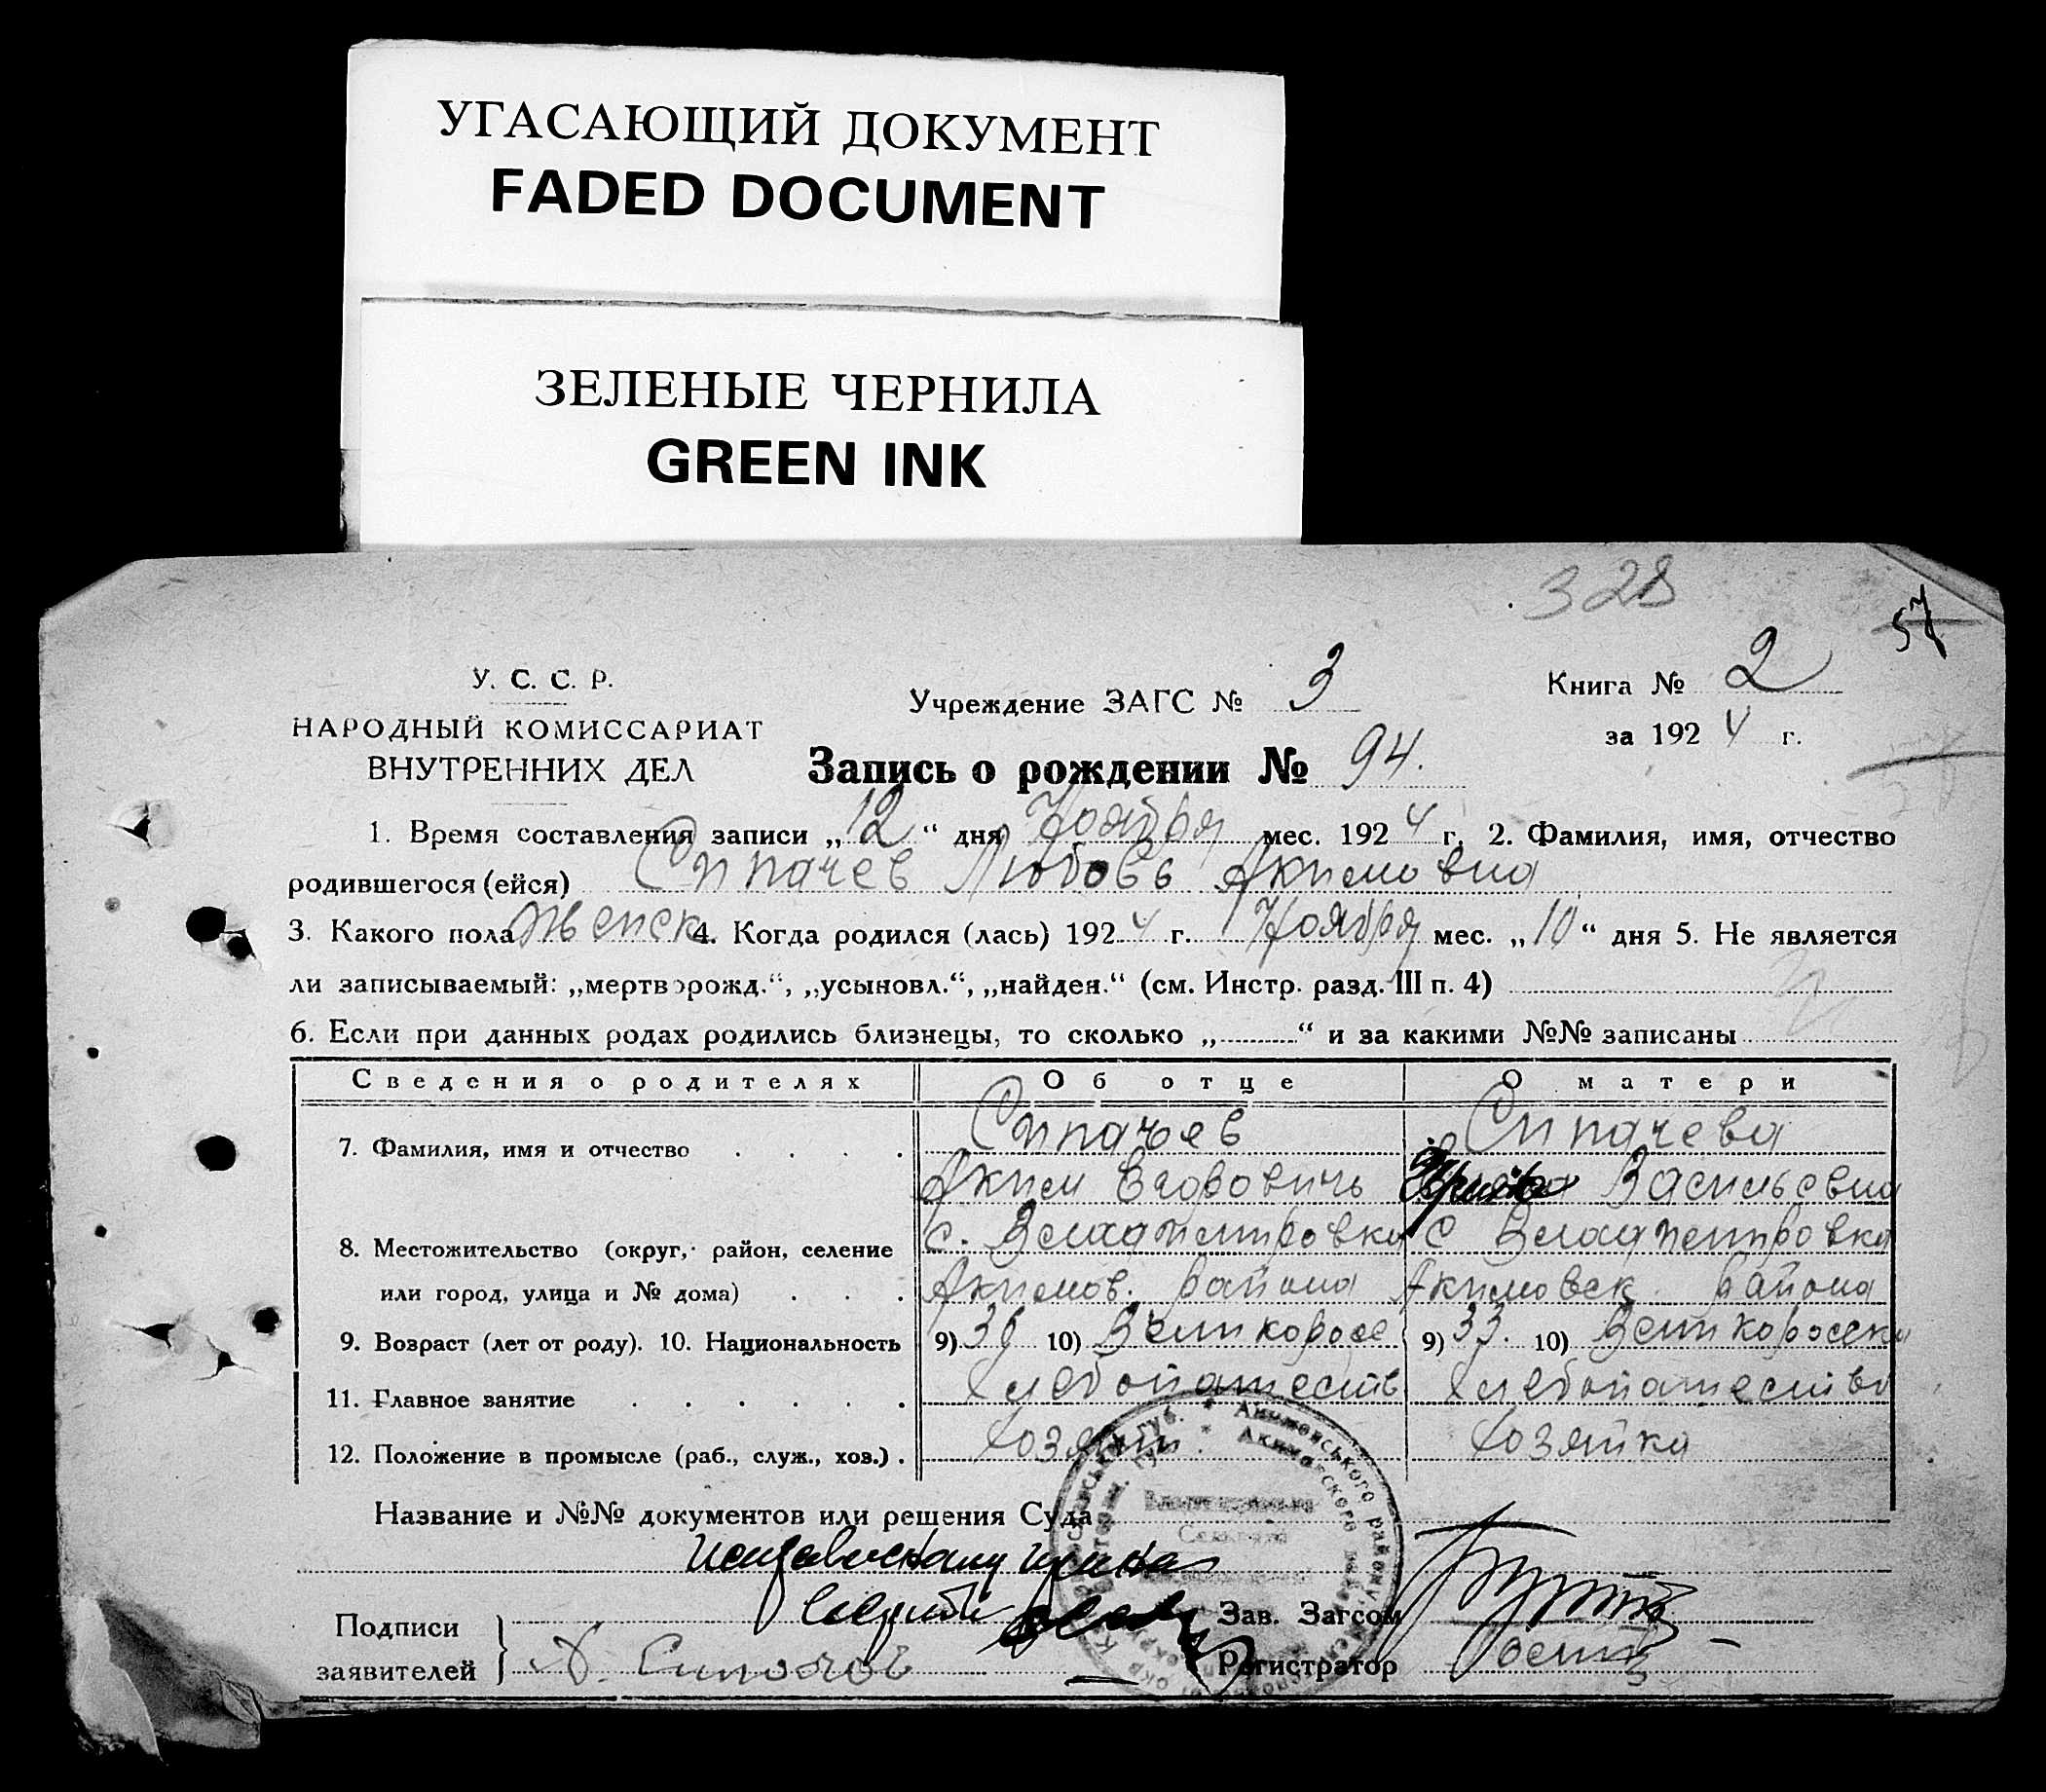 УГАСАЮЩИЙ ДОКУМЕНТ
FADED DOCUMENT
ЗЕЛЕНЫЕ ЧЕРНИЛА
GREEN INK
328
57
У. С. С. Р.
НАРОДНЫЙ КОМИССАРИАТ
ВНУТРЕННИХ ДЕЛ
Учреждение ЗАГС № 3
Книга № 2
за 1924 г.
Запись о рождении № 94.
1. Время составления записи „12“ дня Ноября мес. 1924 г. 2. Фамилия, имя, отчество
родившегося (ейся) Сипачев Любовь Акимовна
3. Какого пола женск 4. Когда родился (лась) 1924 г. Ноября мес. „10“ дня 5. Не является
ли записываемый: „мертворожд.“, „усыновл.“, „найден.“ (см. Инстр. разд. III п. 4)
6. Если при данных родах родились близнецы, то сколько „ “ и за какими №№ записаны
Сведения о родителях Об отце О матери
7. Фамилия, имя и отчество Сипачев Сипачева
Аким Егорович Васильевна
8. Местожительство (округ, район, селение с. Владимировка с Владимировка
или город, улица и № дома) Акимов. района Акимовск. района
9. Возраст (лет от роду). 10. Национальность 9) 36 10) Великоросс 9) 33. 10) Великоросска
11. Главное занятие Хлебопашеств Хлебопашество
12. Положение в промысле (раб., служ., хоз.) Хозяин. Хозяйка
Название и №№ документов или решения Суда
Подписи
заявителей
А. Сипачов
Зав. Загсом
Регистратор